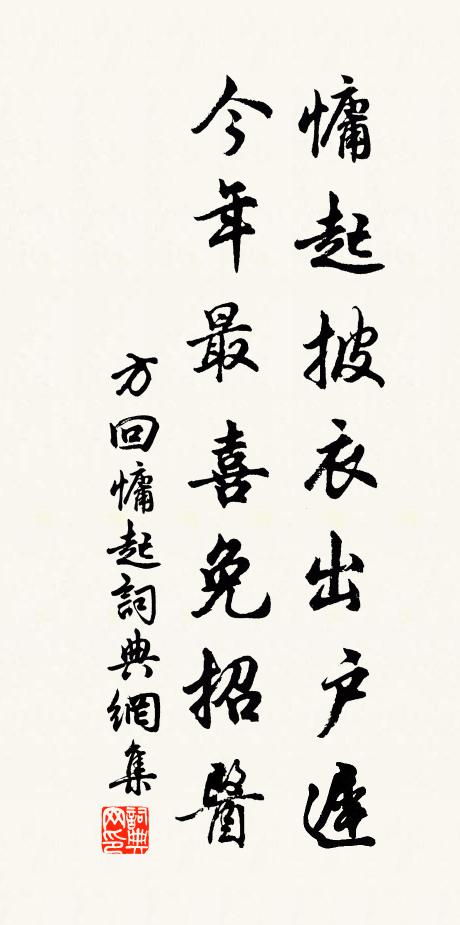 慵起披衣出户遲
今年最喜免招醫
方回慵起詞典網集
詞典网印